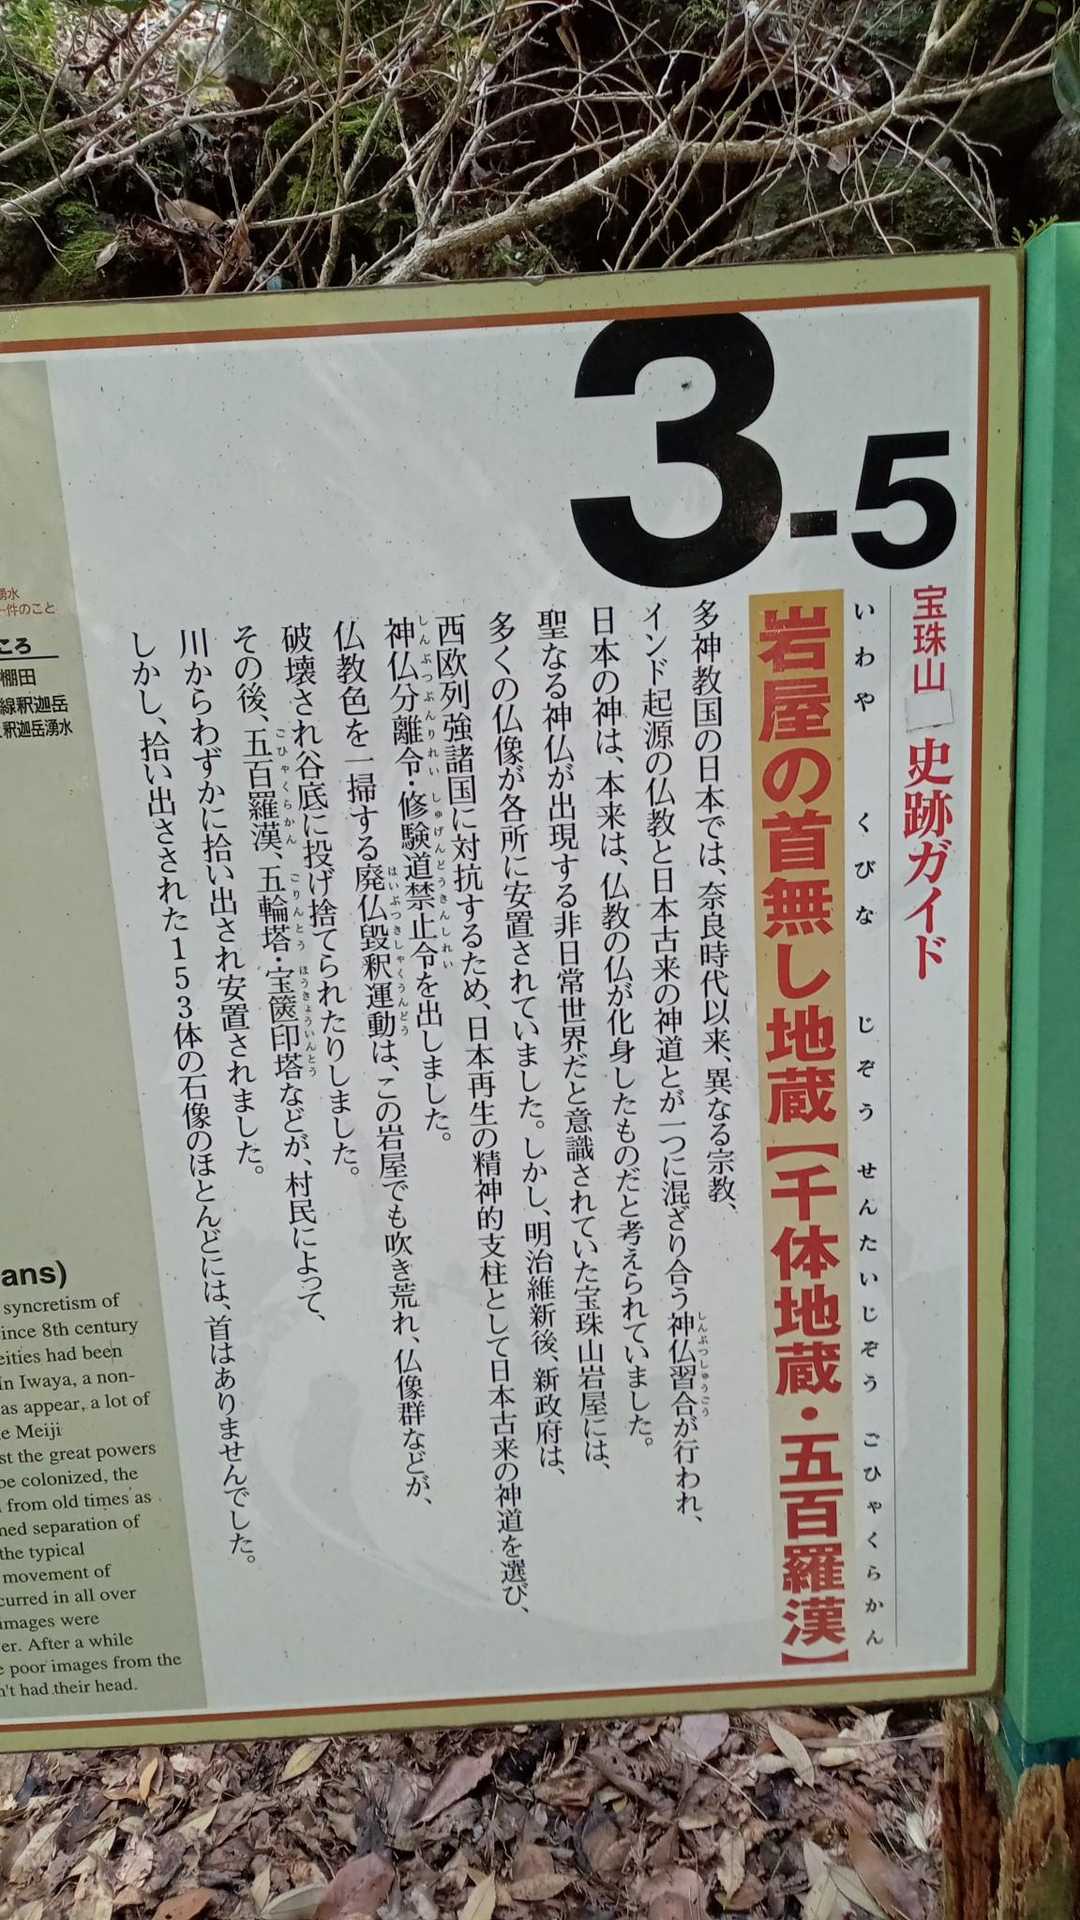 3-5
宝珠山 史跡ガイド
いわや くびな じぞう せんたいじぞう ごひゃくらかん
岩屋の首無し地蔵【千体地蔵・五百羅漢】
多神教国の日本では、奈良時代以来、異なる宗教、
インド起源の仏教と日本古来の神道とが一つに混ざり合う神仏習合が行われ、
しんぶつしゅうごう
日本の神は、本来は、仏教の仏が化身したものだと考えられていました。
聖なる神仏が出現する非日常世界だと意識されていた宝珠山岩屋には、
多くの仏像が各所に安置されていました。しかし、明治維新後、新政府は、
西欧列強諸国に対抗するため、日本再生の精神的支柱として日本古来の神道を選び、
しんぶつぶんりれい しゅげんどうきんしれい
神仏分離令・修験道禁止令を出しました。
はいぶつきしゃくうんどう
仏教色を一掃する廃仏毀釈運動は、この岩屋でも吹き荒れ、仏像群などが、
破壊され谷底に投げ捨てられたりしました。
ごひゃくらかん ごりんとう ほうきょういんとう
その後、五百羅漢、五輪塔・宝篋印塔などが、村民によって、
川からわずかに拾い出され安置されました。
しかし、拾い出さされた153体の石像のほとんどには、首はありませんでした。
湧水
件のこと
ころ
棚田
線釈迦岳
釈迦岳湧水
ans)
syncretism of
ince 8th century
eities had been
In Iwaya, a non-
as appear, a lot of
e Meiji
st the great powers
be colonized, the
from old times as
med separation of
the typical
movement of
curred in all over
images were
er. After a while
e poor images from the
n't had their head.